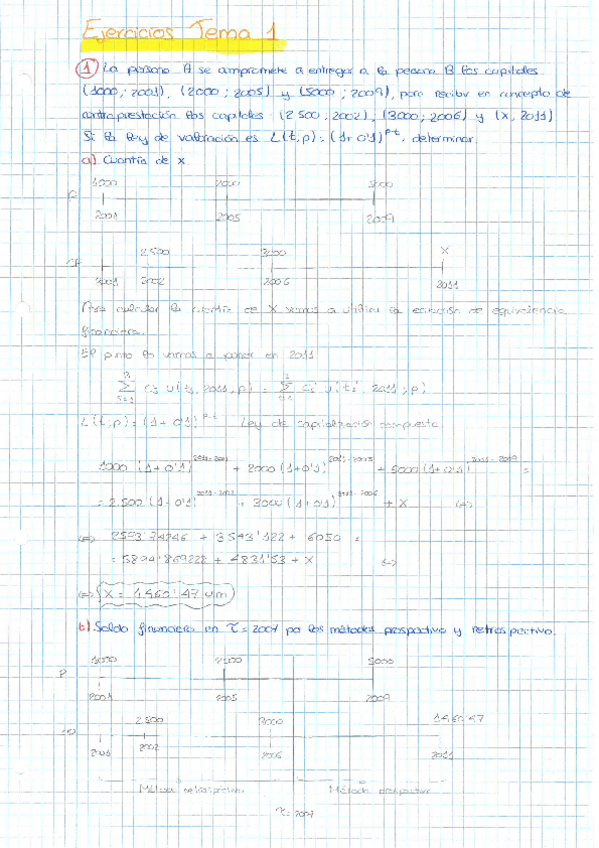 Ejercicios Tema 1
1 La persona A se compromete a entregar a la persona B los capitales
(1000; 2001), (2000; 2005) y (5000; 2009), para recibir en concepto de
contraprestación los capitales: (2500; 2002), (3000; 2006) y (X, 2011)
Si la ley de valoración es L(t,p) = (1+0'1)^p-t, determinar:
a) Cuantía de x
1000 2000 5000
P
2001 2005 2009
2.500 3000 X
CP
2001 2002 2006 2011
Para calcular la cuantía de X vamos a utilizar la ecuación de equivalencia
financiera.
El punto lo vamos a poner en 2011
L(t;p) = (1+0'1)^p-t Ley de capitalización compuesta
1000 (1+0'1)^2011-2001 + 2000 (1+0'1)^2011-2005 + 5000 (1+0'1)^2011-2009 =
= 2.500 (1+0'1)^2011-2002 + 3000 (1+0'1)^2011-2006 + X <=>
<=> 2593'74246 + 3543'122 + 6050 =
= 5894'869228 + 4831'53 + X <=>
<=> X = 1.460'47 um
b) Saldo financiero en τ = 2007 por los métodos prospectivo y retrospectivo.
1000 2000 5000
P
2001 2005 2009
2.500 3000 1.460'47
CP
2001 2002 2006 2011
Método retrospectivo Método prospectivo
τ = 2007